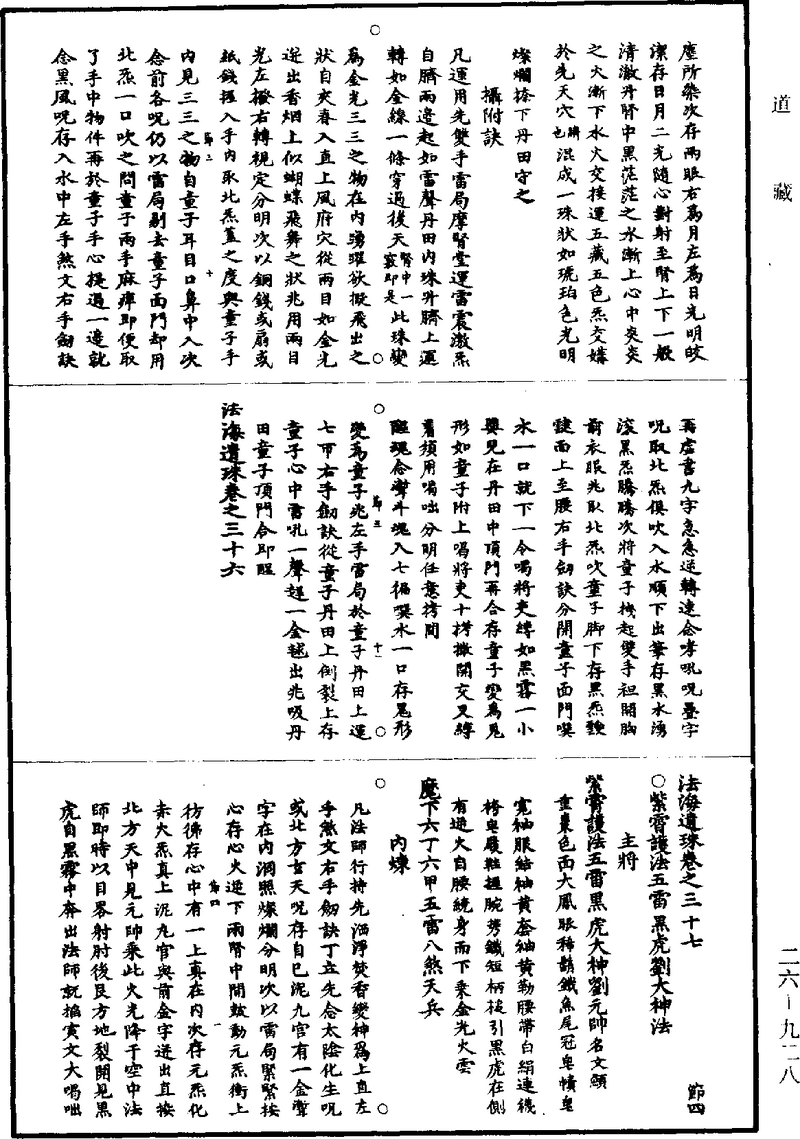 道藏
塵所染次存兩眼右為月左為日光明皎
潔存日月二光隨心對射至腎上下一般
清澈丹腎中黑茫茫之水漸上心中炎炎
之火漸下水火交接運五藏五色炁交媾
於先天穴臍也混成一珠狀如琥珀色光明
燦爛捺下丹田守之
攝附訣
凡運用先雙手雷局摩腎堂運雷震激炁
自臍兩邊起如雷聲丹田內珠升臍上運
轉如金線一條穿過後天腎中一竅即是此珠變
為金光三三之物在內踴躍欲擬飛出之
狀自夾脊入直上風府穴從兩目如金光
迸出香烟上似蝴蝶飛舞之狀兆用兩目
光左撥右轉視定分明次以銅錢或扇或
紙錢握入手內取北炁蓋之度與童子手
內見三三之物自童子耳目口鼻中入次
念前各呪仍以雷局剔去童子面門却用
北炁一口吹之問童子兩手麻痺即便取
了手中物件再於童子手心提過一邊就
念黑風呪存入水中左手煞文右手劍訣
再虛書九字急急逆轉速念哮吼呪疊字
呪取北炁俱吹入水順下出筆存黑水湧
滾黑炁騰騰次將童子攙起雙手袒開胸
前衣服兆取北炁吹童子脚下存黑炁
面上至腰右手劍訣分開童子面門噀
水一口就下一令喝將吏縛如黑霧一小
嬰兒在丹田中頂門再合存童子變為鬼
形如童子附上喝將吏十拷撒開交叉縛
著須用喝咄分明任意拷問
醒魂念聻斗魂入七徧噀水一口存鬼形
變為童子兆左手雷局於童子丹田上運
七帀右手劍訣從童子丹田上倒裂上存
童子心中雷吼一聲趕一金毬出兆吸丹
田童子頂門合即醒
法海遺珠卷之三十六
法海遺珠卷之三十七　節四
○紫霄護法五雷黑虎劉大神法
主將
紫霄護法五雷黑虎大神劉元帥名文顯
重棗色面大鳳眼秭鬍鐵魚尾冠皂幘皂
寬紬服結紬黃奪紬黃勒腰帶白絹連襪
袴皂履鞋提腕荸鐵短柄槌引黑虎在側
有遊火自腰繞身而下乘金光火雲
麾下六丁六甲五雷八煞天兵
內煉
凡法師行持先洒淨焚香變神為上直左
手煞文右手劍訣丁立先念太陰化生呪
或北方玄天呪存自己泥丸宮有一金聻
字在內洞照燦爛分明次以雷局緊緊按
心存心火逆下兩腎中間鼓動元炁衝上
彷彿存心中有一上真在內次存元炁化
赤火炁真上泥丸宮與前金字迸出直按
北方天中見元帥乘此火光降于空中法
師即時以目畧射肘後艮方地裂開見黑
虎自黑霧中奔出法師就掐寅文大喝咄
二六－九二八